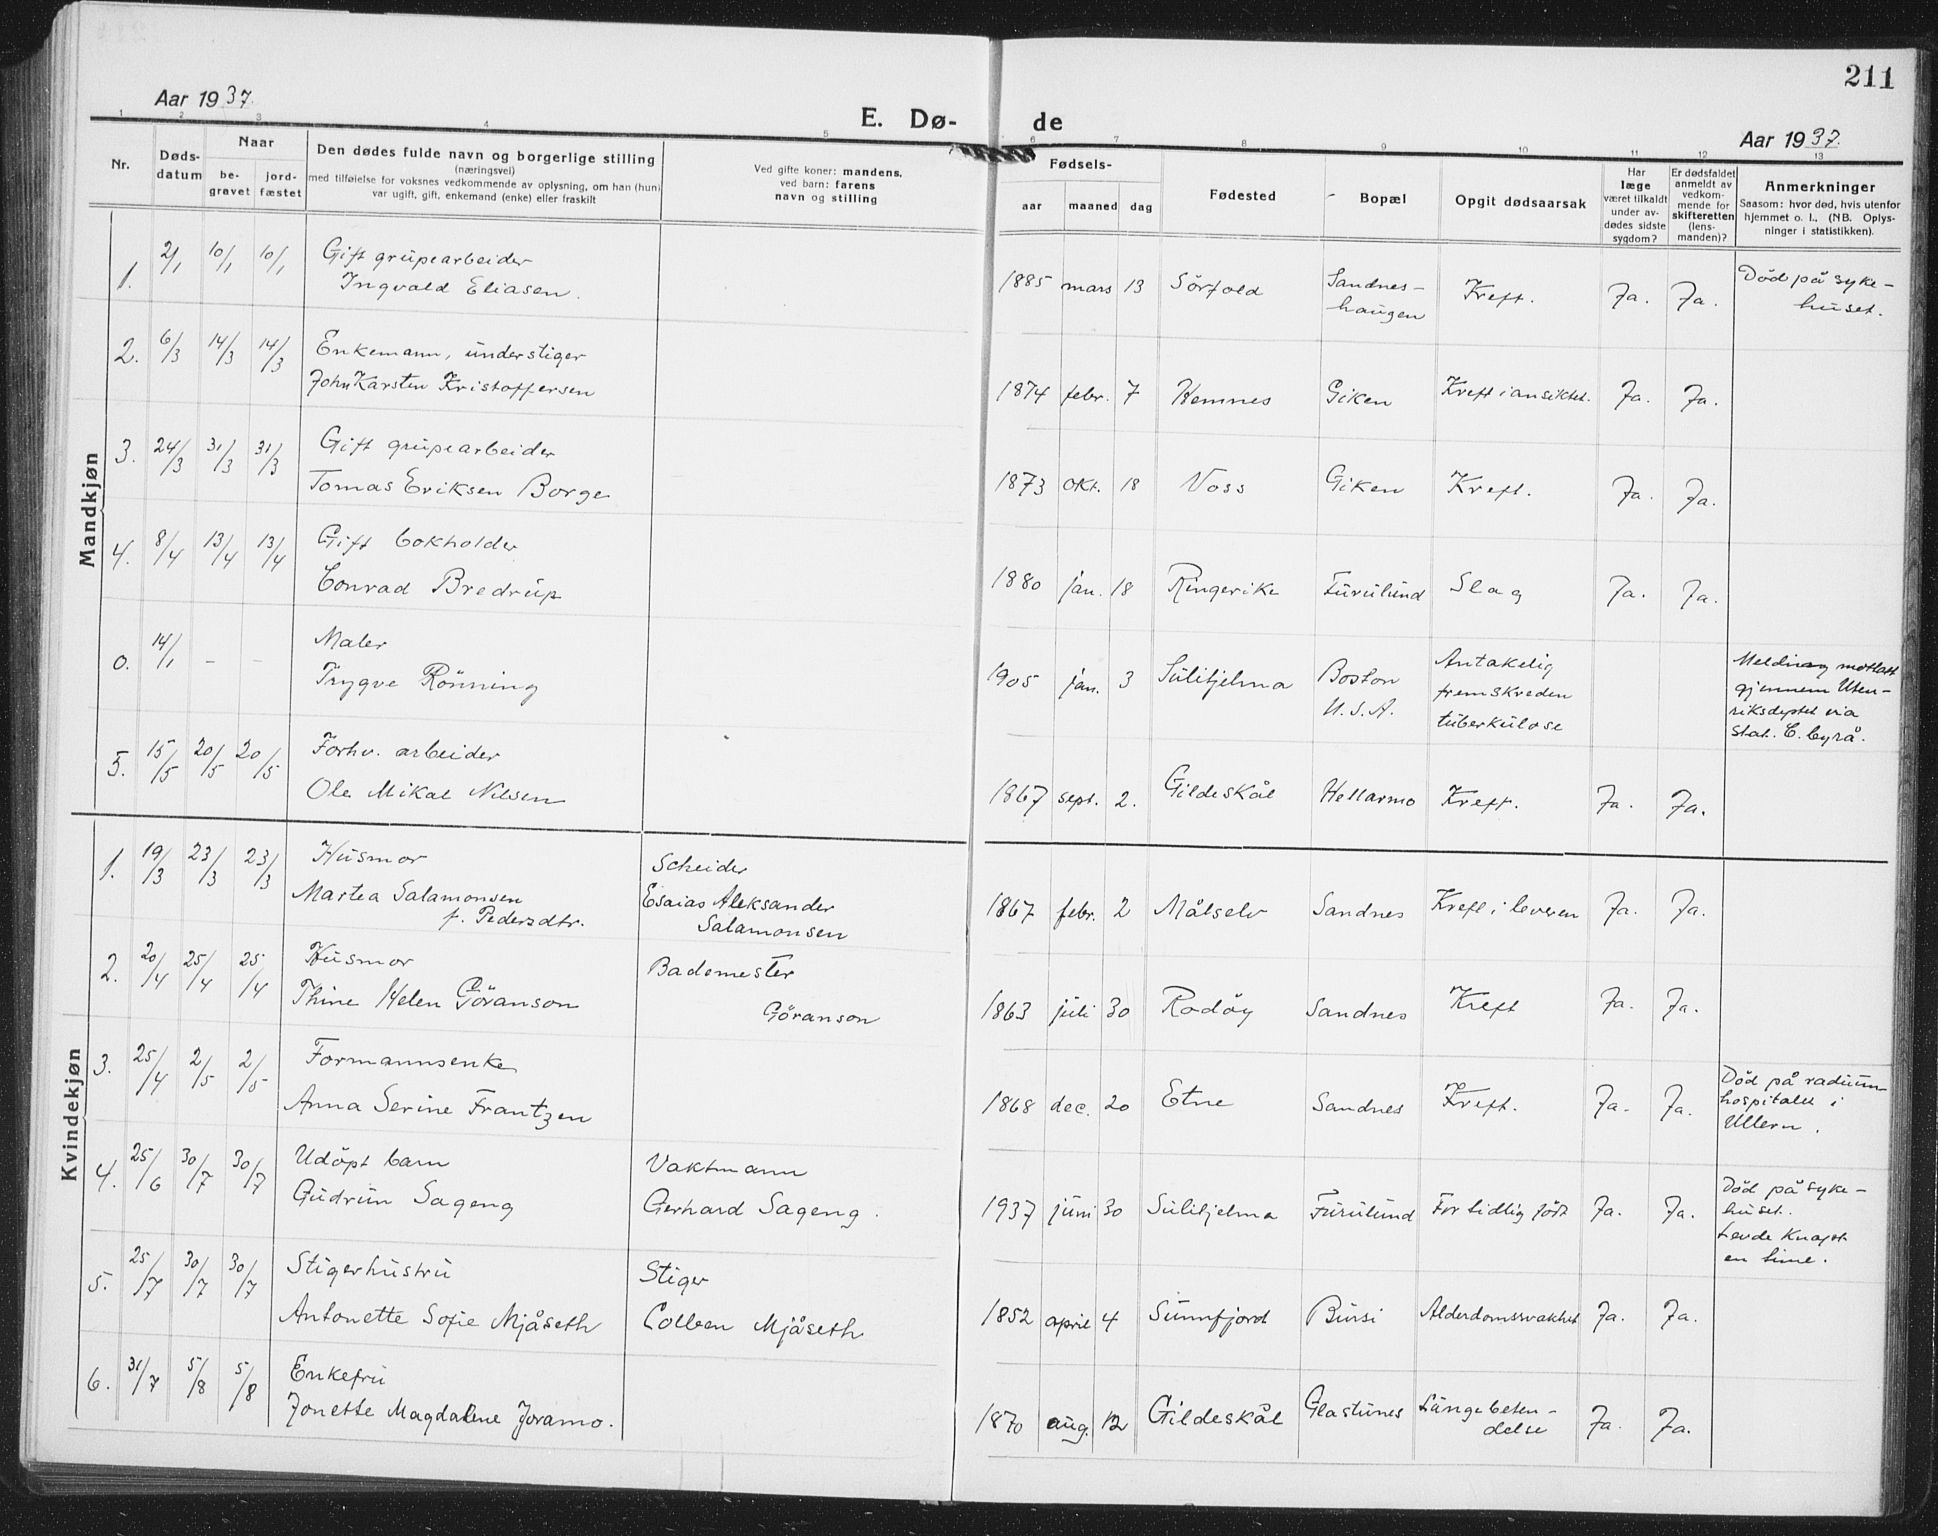 211
Aar 1937.
E. Dø-
de
Aar 1937.
1 2 3 4 5 6 7 8 9 10 11 12 13
Nr.
Døds-
datum
Naar
be-
gravet
jord-
fæstet
Den dødes fulde navn og borgerlige stilling
(næringsvei)
med tilføielse for voksnes vedkommende av oplysning, om han (hun)
var ugift, gift, enkemand (enke) eller fraskilt
Ved gifte koner: mandens,
ved barn: farens
navn og stilling
Fødsels-
aar maaned dag
Fødested
Bopæl
Opgit dødsaarsak
Har
læge
været tilkaldt
under av-
dødes sidste
sygdom?
Er dødsfaldet
anmeldt av
vedkom-
mende for
skifteretten
(lens-
manden)?
Anmerkninger
Saasom: hvor død, hvis utenfor
hjemmet o. l., (NB. Oplys-
ninger i statistikken).
Mandkjøn
1. 2/1 10/1 10/1 Gift grupearbeider
Ingvald Eliasen.
1885 mars 13 Sörfold Sandnes-
haugen
Kreft. Ja. Ja. Död på syke-
huset.
2. 6/3 14/3 14/3 Enkemann, understiger
John Karsten Kristoffersen
1874 febr. 7 Hemnes Giken Kreft i ansiktet. Ja. Ja.
3. 24/3 31/3 31/3 Gift grupearbeider
Tomas Eriksen Borge
1873 okt. 18 Voss Giken Kreft. Ja. Ja.
4. 8/4 13/4 13/4 Gift bokholder
Conrad Bredrup
1880 jan. 18 Ringerike Furulund Slag Ja. Ja.
0. 14/1 - - Maler
Trygve Rönning
1905 jan. 3 Sulitjelma Boston
U.S.A.
Antakelig
fremskreden
tuberkulose
Melding mottatt
gjennem Uten-
riksdeptet via
Stat. C. byrå.
5. 15/5 20/5 20/5 Forhv. arbeider
Ole Mikal Nilsen
1867 sept. 2. Gildeskål Hellarmo Kreft. Ja. Ja.
Kvindekjøn
1. 19/3 23/3 23/3 Husmor
Martea Salamonsen
f. Pedersdtr.
Scheider
Esaias Aleksander
Salamonsen
1867 febr. 2 Målselv Sandnes Kreft i leveren Ja. Ja.
2. 20/4 25/4 25/4 Husmor
Thine Helen Göranson
Bademester
Göranson
1863 juli 30 Rodöy Sandnes Kreft Ja. Ja.
3. 25/4 2/5 2/5 Formannsenke
Anna Serine Frantzen
1868 dec. 20 Etne Sandnes Kreft. Ja. Ja.
Död på radium-
hospitalet i
Ullern.
4. 25/6 30/7 30/7 Udöpt barn
Gudrun Sageng
Vaktmann
Gerhard Sageng.
1937 juni 30 Sulitjelma Furulund For tidlig födt Ja. Ja.
Död på syke-
huset.
Levde knapt
en time.
5. 25/7 30/7 30/7 Stigerhustru
Antonette Sofie Mjåseth
Stiger
Colleen Mjåseth
1852 april 4 Sunnfjord Bursi Alderdomssvakhet Ja. Ja.
6. 31/7 5/8 5/8 Enkefru
Jonette Magdalene Joramo.
1870 aug. 12 Gildeskål Glastunes Lungebeten-
delse
Ja. Ja.